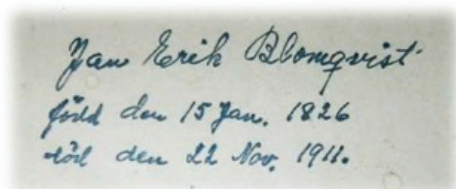 Jan Erik Blomqvist
född den 15 Jan. 1826
död den 22 Nov. 1911.